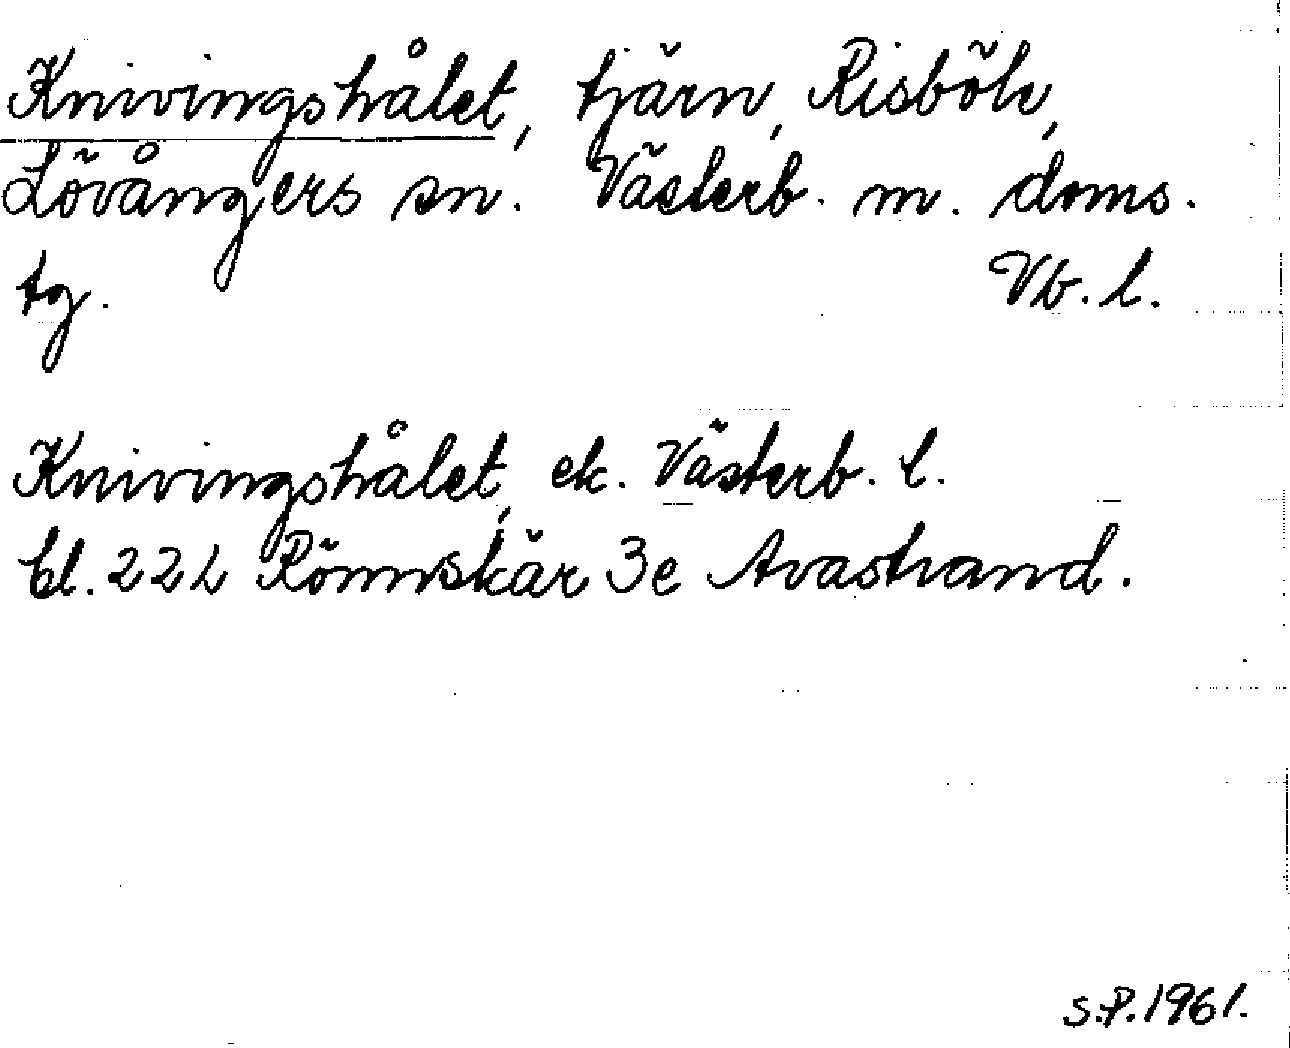 Knivingshålet, tjärn, Risböle,
Lövångers sn. Västerb. m. doms.
tg. Vb. l.
Knivingshålet, ek. Västerb. l.
bl. 22L Rönnskär 3e Avastrand.
S.P. 1961.